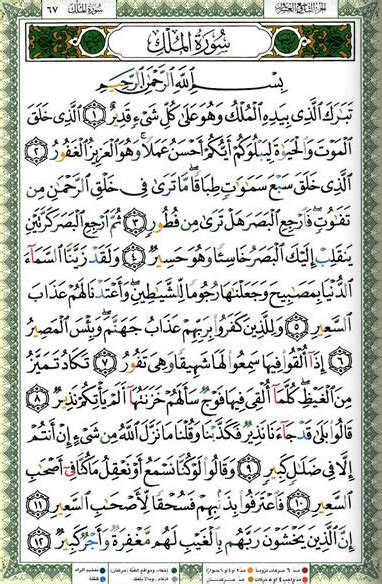 سُورَةُ المُلْكِ ٦٧ الجزء التاسع والعشرون
سُورَةُ المُلْكِ
بِسْمِ اللَّهِ الرَّحْمَٰنِ الرَّحِيمِ
تَبَارَكَ الَّذِي بِيَدِهِ الْمُلْكُ وَهُوَ عَلَىٰ كُلِّ شَيْءٍ قَدِيرٌ ١ الَّذِي خَلَقَ
الْمَوْتَ وَالْحَيَوٰةَ لِيَبْلُوَكُمْ أَيُّكُمْ أَحْسَنُ عَمَلًا وَهُوَ الْعَزِيزُ الْغَفُورُ ٢
الَّذِي خَلَقَ سَبْعَ سَمَٰوَٰتٍ طِبَاقًا مَّا تَرَىٰ فِي خَلْقِ الرَّحْمَٰنِ مِن
تَفَٰوُتٍ فَارْجِعِ الْبَصَرَ هَلْ تَرَىٰ مِن فُطُورٍ ٣ ثُمَّ ارْجِعِ الْبَصَرَ كَرَّتَيْنِ
يَنقَلِبْ إِلَيْكَ الْبَصَرُ خَاسِئًا وَهُوَ حَسِيرٌ ٤ وَلَقَدْ زَيَّنَّا السَّمَاءَ
الدُّنْيَا بِمَصَٰبِيحَ وَجَعَلْنَٰهَا رُجُومًا لِّلشَّيَٰطِينِ وَأَعْتَدْنَا لَهُمْ عَذَابَ
السَّعِيرِ ٥ وَلِلَّذِينَ كَفَرُوا بِرَبِّهِمْ عَذَابُ جَهَنَّمَ وَبِئْسَ الْمَصِيرُ
٦ إِذَا أُلْقُوا فِيهَا سَمِعُوا لَهَا شَهِيقًا وَهِيَ تَفُورُ ٧ تَكَادُ تَمَيَّزُ
مِنَ الْغَيْظِ كُلَّمَا أُلْقِيَ فِيهَا فَوْجٌ سَأَلَهُمْ خَزَنَتُهَا أَلَمْ يَأْتِكُمْ نَذِيرٌ ٨
قَالُوا بَلَىٰ قَدْ جَاءَنَا نَذِيرٌ فَكَذَّبْنَا وَقُلْنَا مَا نَزَّلَ اللَّهُ مِن شَيْءٍ إِنْ أَنتُمْ
إِلَّا فِي ضَلَٰلٍ كَبِيرٍ ٩ وَقَالُوا لَوْ كُنَّا نَسْمَعُ أَوْ نَعْقِلُ مَا كُنَّا فِي أَصْحَٰبِ
السَّعِيرِ ١٠ فَاعْتَرَفُوا بِذَنبِهِمْ فَسُحْقًا لِّأَصْحَٰبِ السَّعِيرِ ١١
إِنَّ الَّذِينَ يَخْشَوْنَ رَبَّهُم بِالْغَيْبِ لَهُم مَّغْفِرَةٌ وَأَجْرٌ كَبِيرٌ ١٢